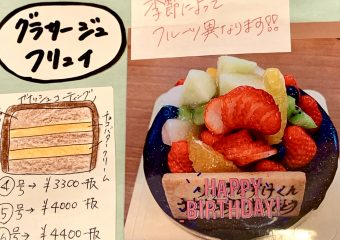 グラサージュ
フリュイ
季節によって
フルーツ異なります!!
ガナッシュコーティング
チョコバタークリーム
④号→¥3300-抜
⑤号→¥4000-抜
⑥号→¥4400-抜
HAPPY
BIRTHDAY!